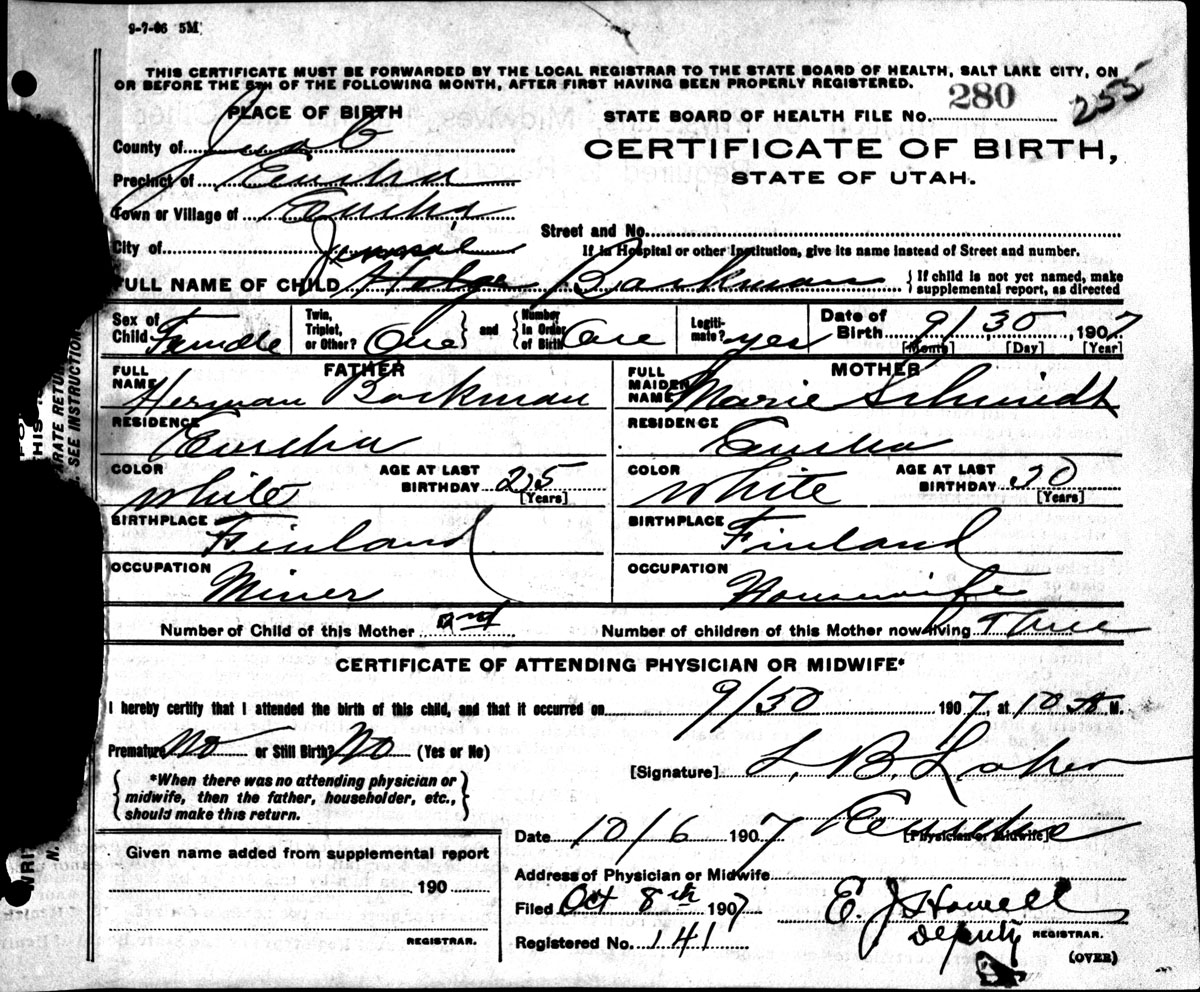 9-7-06 5M
THIS CERTIFICATE MUST BE FORWARDED BY THE LOCAL REGISTRAR TO THE STATE BOARD OF HEALTH, SALT LAKE CITY, ON
OR BEFORE THE 5TH OF THE FOLLOWING MONTH, AFTER FIRST HAVING BEEN PROPERLY REGISTERED.
PLACE OF BIRTH
STATE BOARD OF HEALTH FILE No. 280 255
County of Juab
CERTIFICATE OF BIRTH,
STATE OF UTAH.
Precinct of Eureka
Town or Village of Eureka
Street and No.
City of
If in Hospital or other Institution, give its name instead of Street and number.
FULL NAME OF CHILD Backman
{If child is not yet named, make
supplemental report, as directed
Sex of Child Female
Twin, Triplet, or Other? One
and
Number in Order of Birth One
Legiti-mate? yes
Date of Birth 9/ 30, 1907
[Month] [Day] [Year]
FATHER
FULL NAME Herman Backman
RESIDENCE Eureka
COLOR White
AGE AT LAST BIRTHDAY 25
[Years]
BIRTHPLACE Finland
OCCUPATION Miner
MOTHER
FULL MAIDEN NAME Marie Schmidt
RESIDENCE Eureka
COLOR White
AGE AT LAST BIRTHDAY 30
[Years]
BIRTHPLACE Finland
OCCUPATION Housewife
Number of Child of this Mother 2nd
Number of children of this Mother now living Three
CERTIFICATE OF ATTENDING PHYSICIAN OR MIDWIFE*
I hereby certify that I attended the birth of this child, and that it occurred on 9/30 1907, at 10 A M.
Premature No or Still Birth? No (Yes or No)
*When there was no attending physician or
midwife, then the father, householder, etc.,
should make this return.
[Signature] L. B. Laker
[Physician or Midwife]
Date 10/6 1907 Eureka
Given name added from supplemental report
190
REGISTRAR.
Address of Physician or Midwife
Filed Oct 8th 1907
E. J. Howell
Deputy REGISTRAR.
Registered No. 141
(OVER)